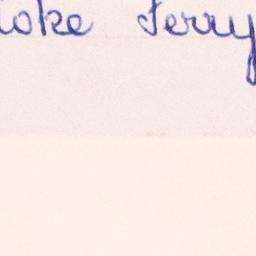 ioke Ferry